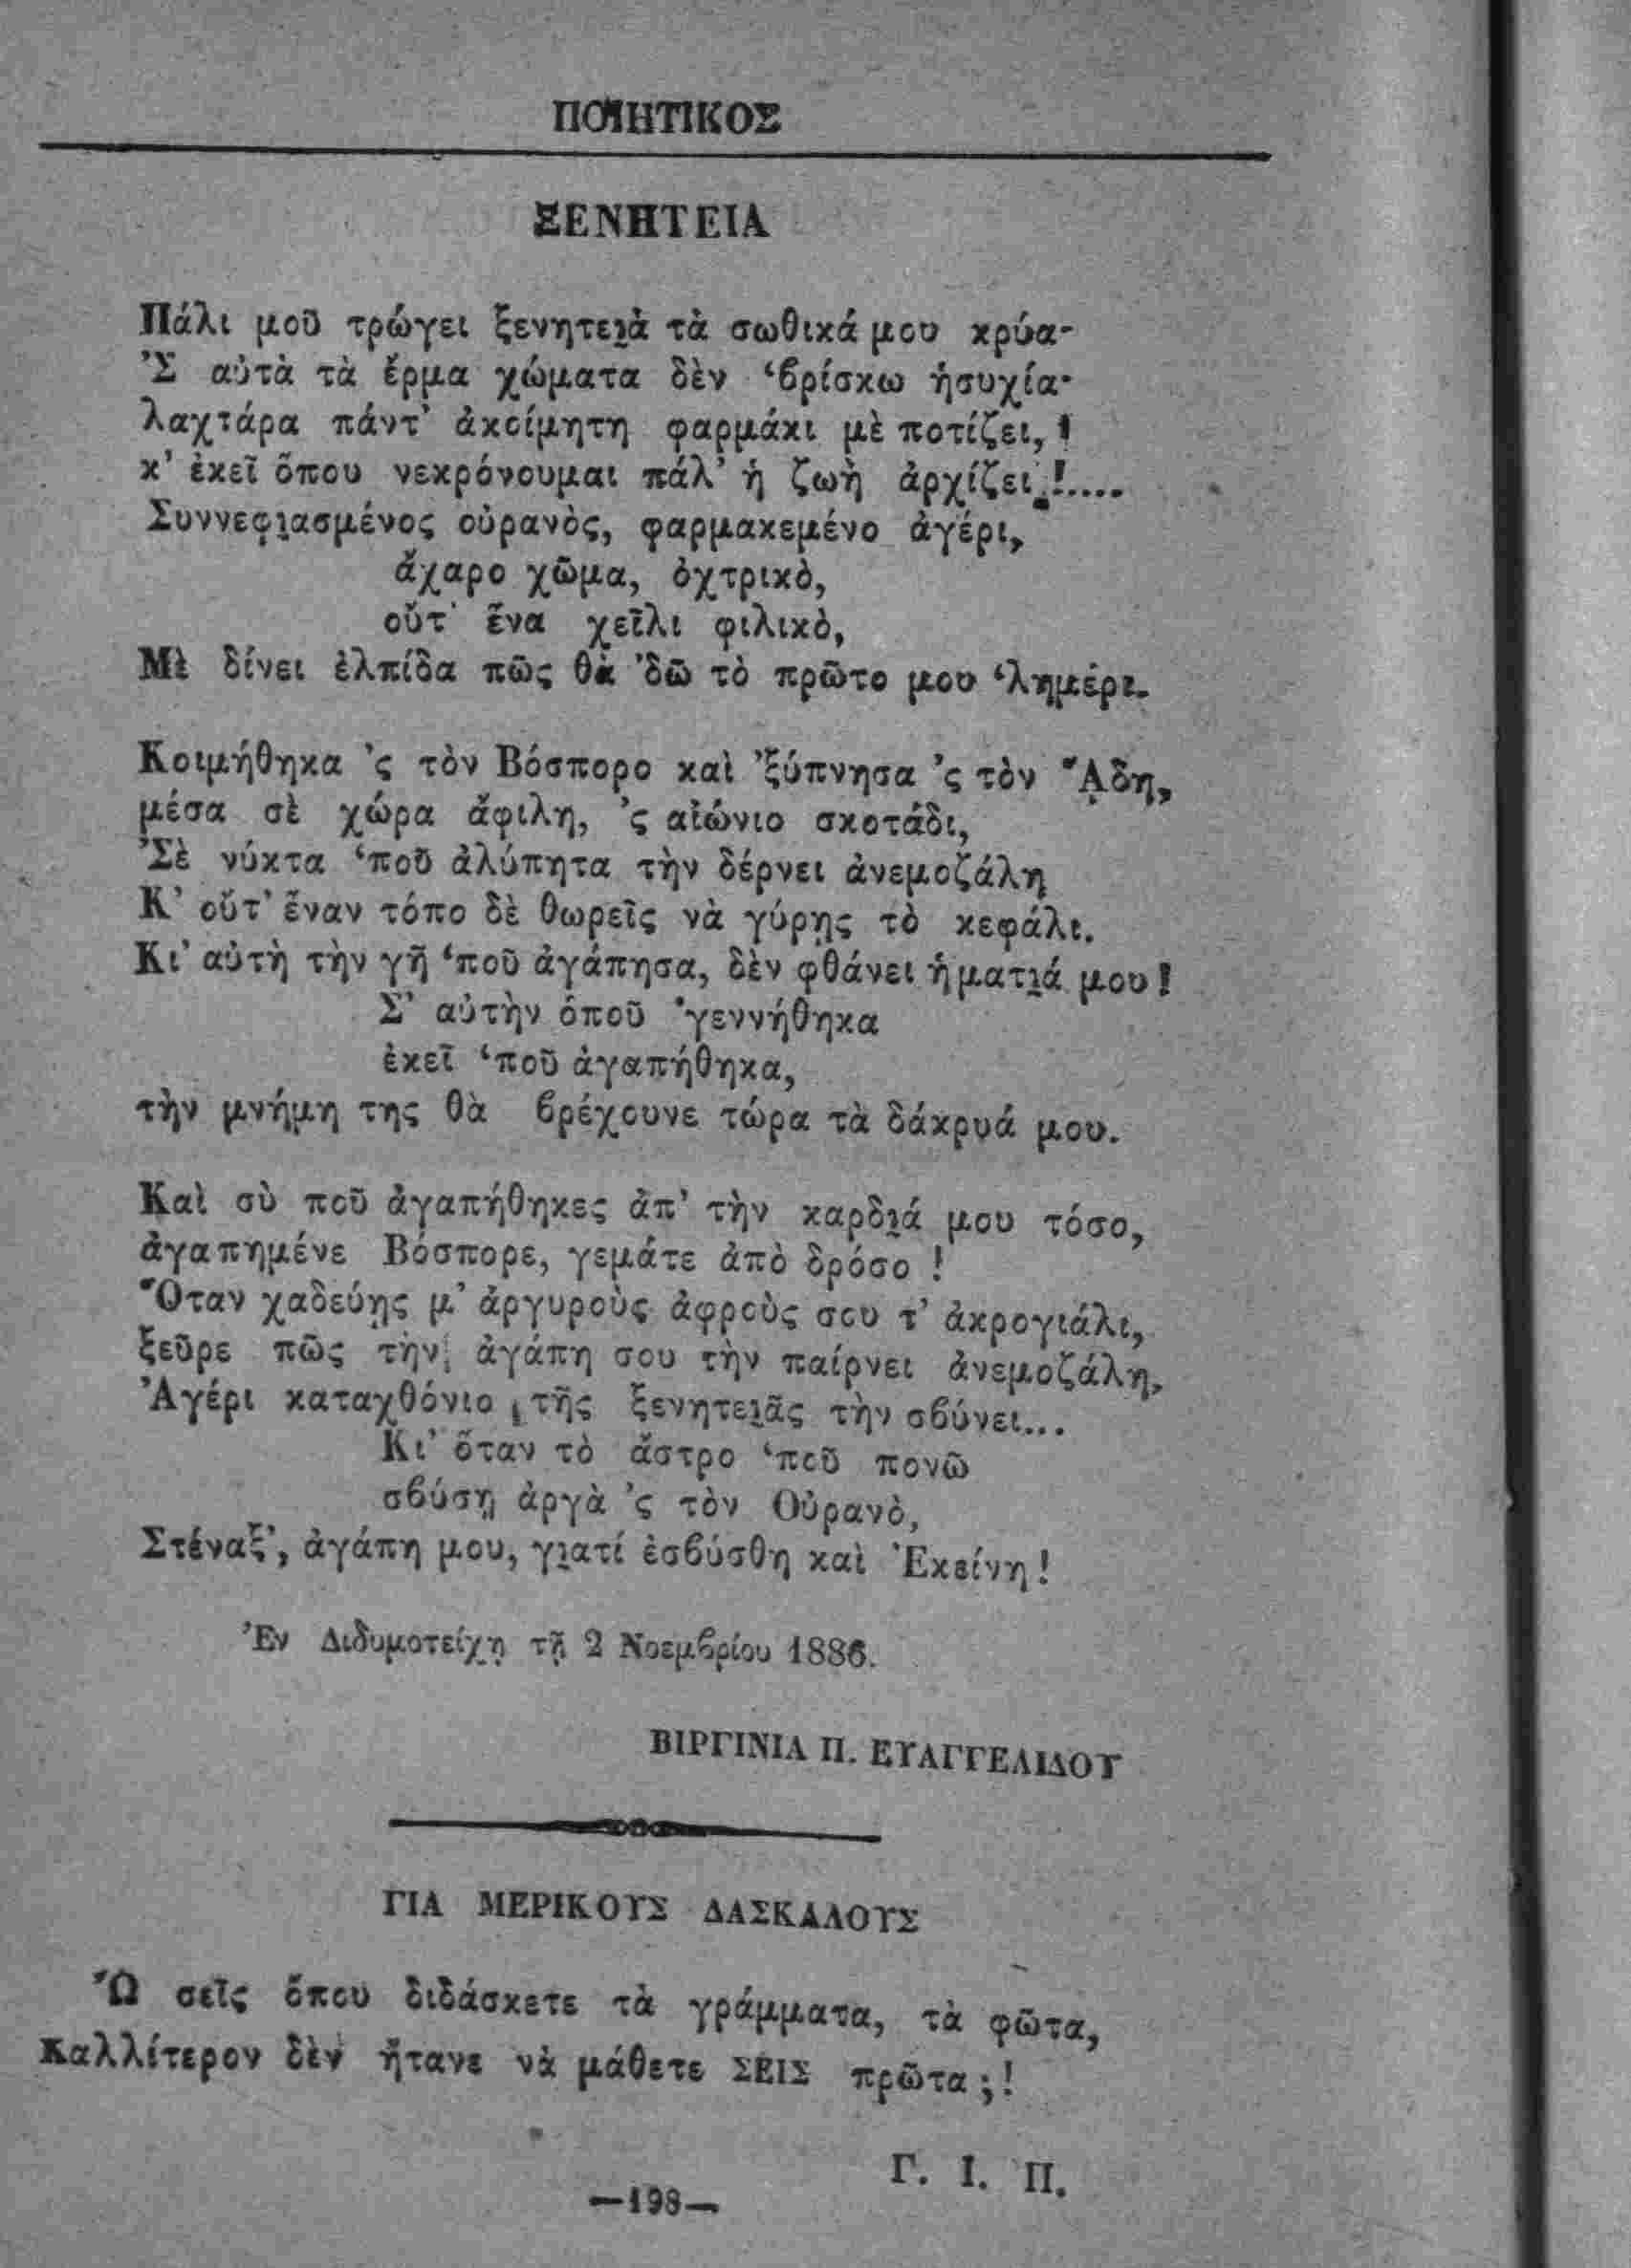 ΠΟΙΗΤΙΚΟΣ
ΞΕΝΗΤΕΙΑ
Πάλι μοῦ τρώγει ξενητειὰ τὰ σωθικά μου κρύα·
Ἐ Σ αὐτὰ τὰ ἔρμα χώματα δὲν ‘βρίσκω ἡσυχία·
λαχτάρα πάντ’ ἀκοίμητη φαρμάκι μὲ ποτίζει, !
κ’ ἐκεῖ ὅπου νεκρόνουμαι πάλ’ ἡ ζωὴ ἀρχίζει !.....
Συννεφιασμένος οὐρανὸς, φαρμακεμένο ἀγέρι,
ἄχαρο χῶμα, ὀχτρικὸ,
οὔτ’ ἕνα χεῖλι φιλικὸ,
Μὲ δίνει ἐλπίδα πῶς θὰ ’δῶ τὸ πρῶτο μου ‘λημέρι.
Κοιμήθηκα ’ς τὸν Βόσπορο καὶ ’ξύπνησα ’ς τὸν ᾍδη,
μέσα σὲ χώρα ἄφιλη, ’ς αἰώνιο σκοτάδι,
Ἐ Σὲ νύκτα ‘ποῦ ἀλύπητα τὴν δέρνει ἀνεμοζάλη
Κ’ οὔτ’ ἕναν τόπο δὲ θωρεῖς νὰ γύρῃς τὸ κεφάλι.
Κι’ αὐτὴ τὴν γῆ ‘ποῦ ἀγάπησα, δὲν φθάνει ἡ ματιά μου !
Σ’ αὐτὴν ὁποῦ ’γεννήθηκα
ἐκεῖ ‘ποῦ ἀγαπήθηκα,
τὴν μνήμη της θὰ βρέχουνε τώρα τὰ δάκρυά μου.
Καὶ σὺ ποῦ ἀγαπήθηκες ἀπ’ τὴν καρδιά μου τόσο,
ἀγαπημένε Βόσπορε, γεμάτε ἀπὸ δρόσο !
Ὅταν χαδεύῃς μ’ ἀργυροὺς ἀφροὺς σου τ’ ἀκρογιάλι,
ξεῦρε πῶς τὴν ἀγάπη σου τὴν παίρνει ἀνεμοζάλη,
Ἀγέρι καταχθόνιο τῆς ξενητειᾶς τὴν σβύνει...
Κι’ ὅταν τὸ ἄστρο ‘ποῦ πονῶ
σβύσῃ ἀργὰ ’ς τὸν Οὐρανὸ,
Στέναξ’, ἀγάπη μου, γιατί ἐσβύσθη καὶ Ἐκείνη !
Ἐν Διδυμοτείχῃ τῇ 2 Νοεμβρίου 1886.
ΒΙΡΓΙΝΙΑ Π. ΕΥΑΓΓΕΛΙΔΟΥ
ΓΙΑ ΜΕΡΙΚΟΥΣ ΔΑΣΚΑΛΟΥΣ
Ὦ σεῖς ὅπου διδάσκετε τὰ γράμματα, τὰ φῶτα,
Καλλίτερον δὲν ἤτανε νὰ μάθετε ΣΕΙΣ πρῶτα ; !
Γ. Ι. Π.
—198—